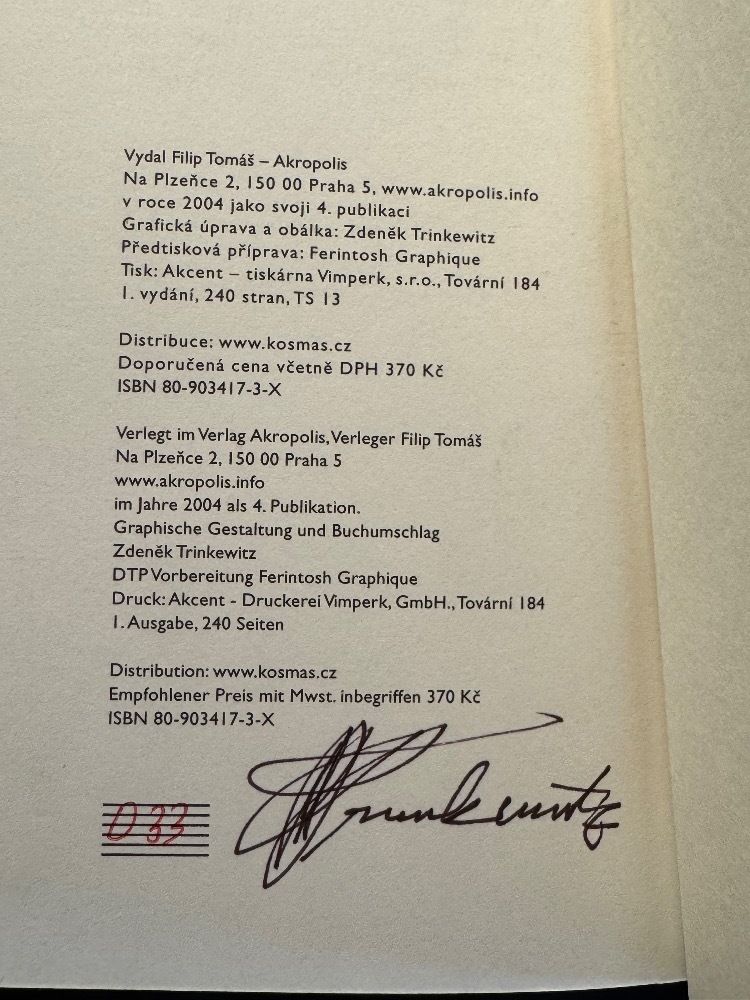 Vydal Filip Tomáš – Akropolis
Na Plzeňce 2, 150 00 Praha 5, www.akropolis.info
v roce 2004 jako svoji 4. publikaci
Grafická úprava a obálka: Zdeněk Trinkewitz
Předtisková příprava: Ferintosh Graphique
Tisk: Akcent – tiskárna Vimperk, s.r.o., Tovární 184
1. vydání, 240 stran, TS 13
Distribuce: www.kosmas.cz
Doporučená cena včetně DPH 370 Kč
ISBN 80-903417-3-X
Verlegt im Verlag Akropolis, Verleger Filip Tomáš
Na Plzeňce 2, 150 00 Praha 5
www.akropolis.info
im Jahre 2004 als 4. Publikation.
Graphische Gestaltung und Buchumschlag
Zdeněk Trinkewitz
DTP Vorbereitung Ferintosh Graphique
Druck: Akcent - Druckerei Vimperk, GmbH., Tovární 184
1. Ausgabe, 240 Seiten
Distribution: www.kosmas.cz
Empfohlener Preis mit Mwst. inbegriffen 370 Kč
ISBN 80-903417-3-X
D 33 Trinkewitz